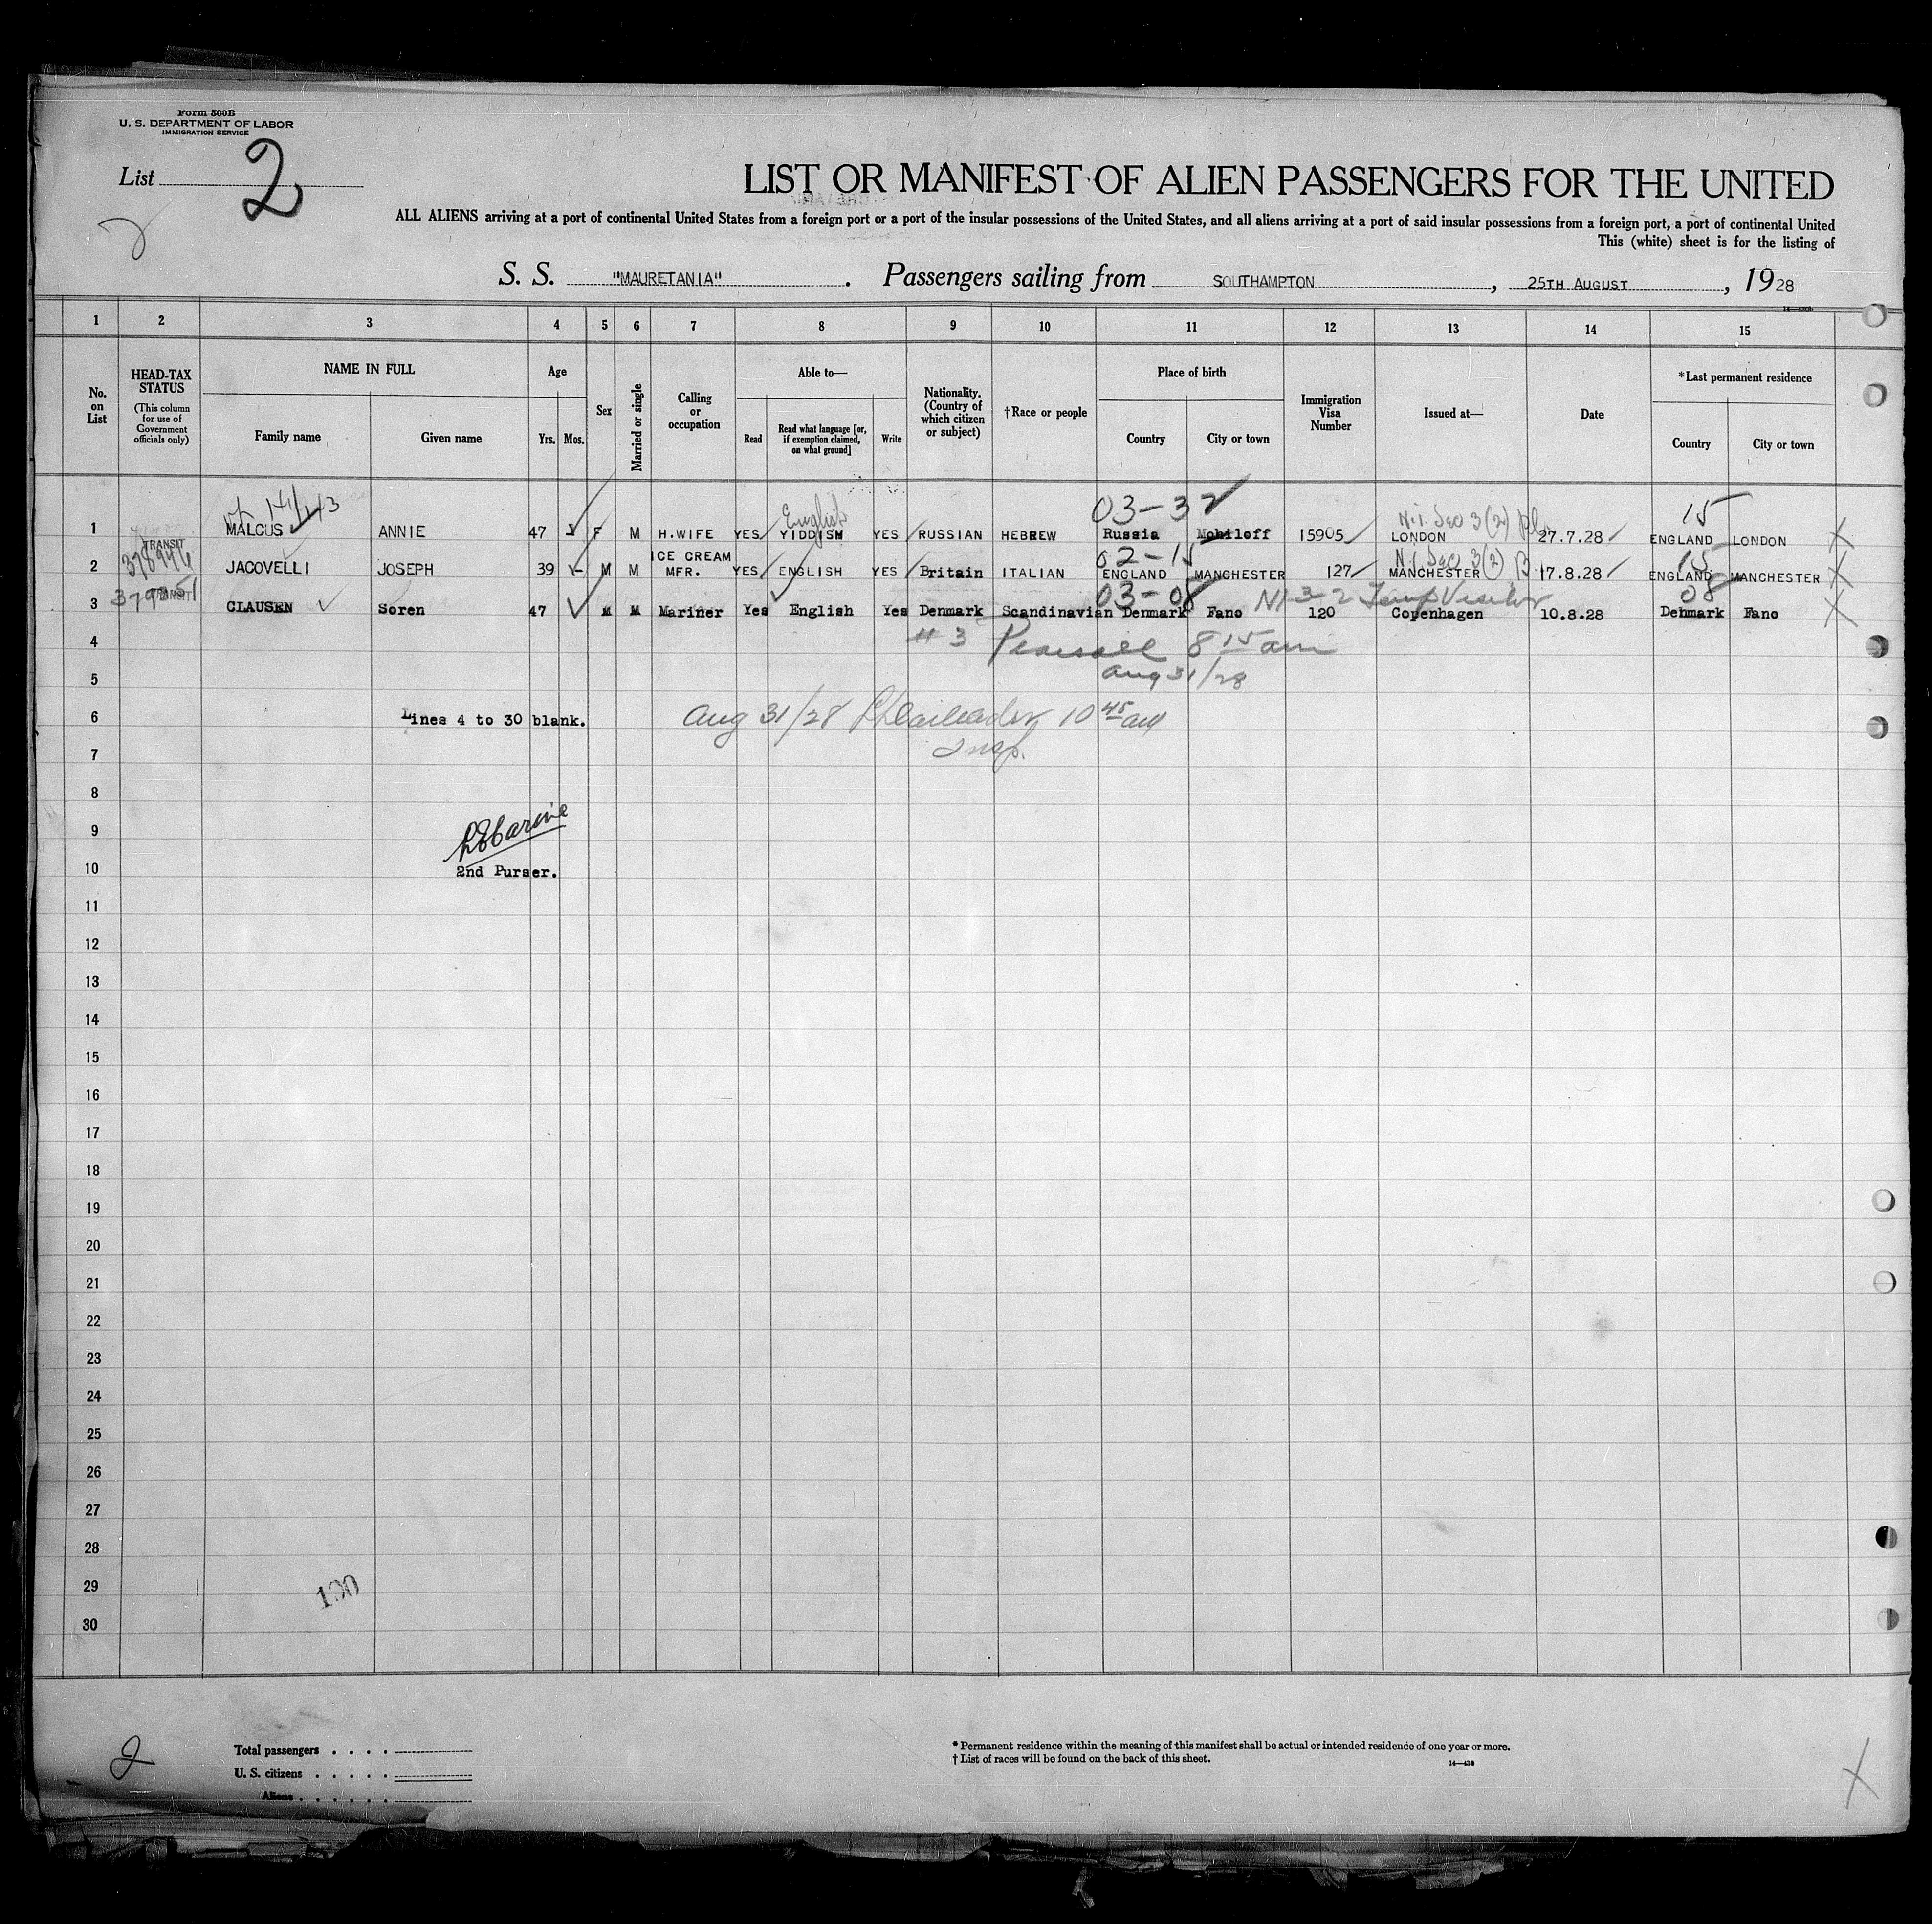 Form 500B
U. S. DEPARTMENT OF LABOR
IMMIGRATION SERVICE
List 2
LIST OR MANIFEST OF ALIEN PASSENGERS FOR THE UNITED
ALL ALIENS arriving at a port of continental United States from a foreign port or a port of the insular possessions of the United States, and all aliens arriving at a port of said insular possessions from a foreign port, a port of continental United
This (white) sheet is for the listing of
S. S. "MAURETANIA". Passengers sailing from SOUTHAMPTON, 25TH AUGUST, 1928
14—430b
1 2 3 4 5 6 7 8 9 10 11 12 13 14 15
No. on List
HEAD-TAX STATUS
(This column for use of Government officials only)
NAME IN FULL
Family name Given name
Age
Yrs. Mos.
Sex
Married or single
Calling or occupation
Able to—
Read
Read what language [or, if exemption claimed, on what ground]
Write
Nationality. (Country of which citizen or subject)
†Race or people
Place of birth
Country City or town
Immigration Visa Number
Issued at—
Date
*Last permanent residence
Country City or town
English 03-32 15
1 MALCUS ANNIE 47 F M H.WIFE YES YIDDISH YES RUSSIAN HEBREW Russia Mohiloff 15905 LONDON 27.7.28 ENGLAND LONDON X
TRANSIT 02-15 N.I. Sec 3(2) 15
2 JACOVELLI JOSEPH 39 - M M ICE CREAM MFR. YES ENGLISH YES Britain ITALIAN ENGLAND MANCHESTER 127 MANCHESTER 17.8.28 ENGLAND MANCHESTER X
TRANSIT 03-08 NI 3-2 Temp Visitor 08
3 CLAUSEN Soren 47 M M Mariner Yes English Yes Denmark Scandinavian Denmark Fano 120 Copenhagen 10.8.28 Denmark Fano X
4 # 3 8 15 am
5 Aug 31/28
6 Lines 4 to 30 blank. Aug 31/28 10 45 am
7 Insp.
8
9
10 2nd Purser.
11
12
13
14
15
16
17
18
19
20
21
22
23
24
25
26
27
28
29 100
30
2
Total passengers . . . .
U. S. citizens . . . . .
Aliens . . . . . .
* Permanent residence within the meaning of this manifest shall be actual or intended residence of one year or more.
† List of races will be found on the back of this sheet.
X